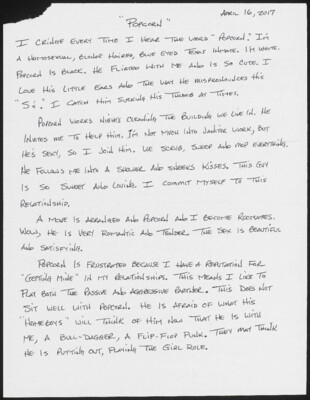 April 16, 2017
"Popcorn"
I cringe every time I hear the word "Popcorn". I'm
a homosexual, blonde haired, blue eyed Texas inmate. I'm white.
Popcorn is black. He flirted with me and is so cute. I
love his little ears and the way he mispronounces his
"S's". I catch him sucking his thumb at times.
Popcorn works nights cleaning the building we live in. He
invites me to help him. I'm not much into janitor work, but
he's sexy, so I join him. We scrub, sweep and mop everything.
He follows me into a shower and sneaks kisses. This guy
is so sweet and loving. I commit myself to this
relationship.
A move is arranged and Popcorn and I become roommates.
Wow, he is very romantic and tender. The sex is beautiful
and satisfying.
Popcorn is frustrated because I have a reputation for
"getting mine" in my relationships. This means I like to
play both the passive and aggressive partner. This does not
sit well with Popcorn. He is afraid of what his
"homeboys" will think of him now that he is with
me, a bull-dagger, a flip-flop punk. They may think
he is putting out, playing the girl role.